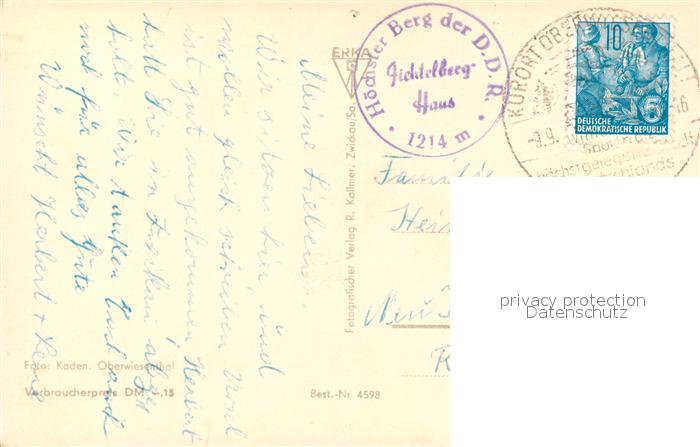 Meine Lieben.
Wir sitzen hier und
wollen gleich schreiben
ist gut angekommen Herbert
hatt Sie in
holt. Wir danken Euch auch
noch für alles Gute
Wünscht Herbert + Lene
Foto: Kaden. Oberwiesenthal
Verbraucherpreis DM -,15
ERKA
Fotografischer Verlag R. Kallmer, Zwickau/Sa.
Best.-Nr 4598
Höchster Berg der D.D.R.
Fichtelberg-
Haus
1214 m
KURORT
-9.9.
höchstgelegene
10
5
DEUTSCHE
DEMOKRATISCHE REPUBLIK
Familie
Hei
Neu
privacy protection
Datenschutz